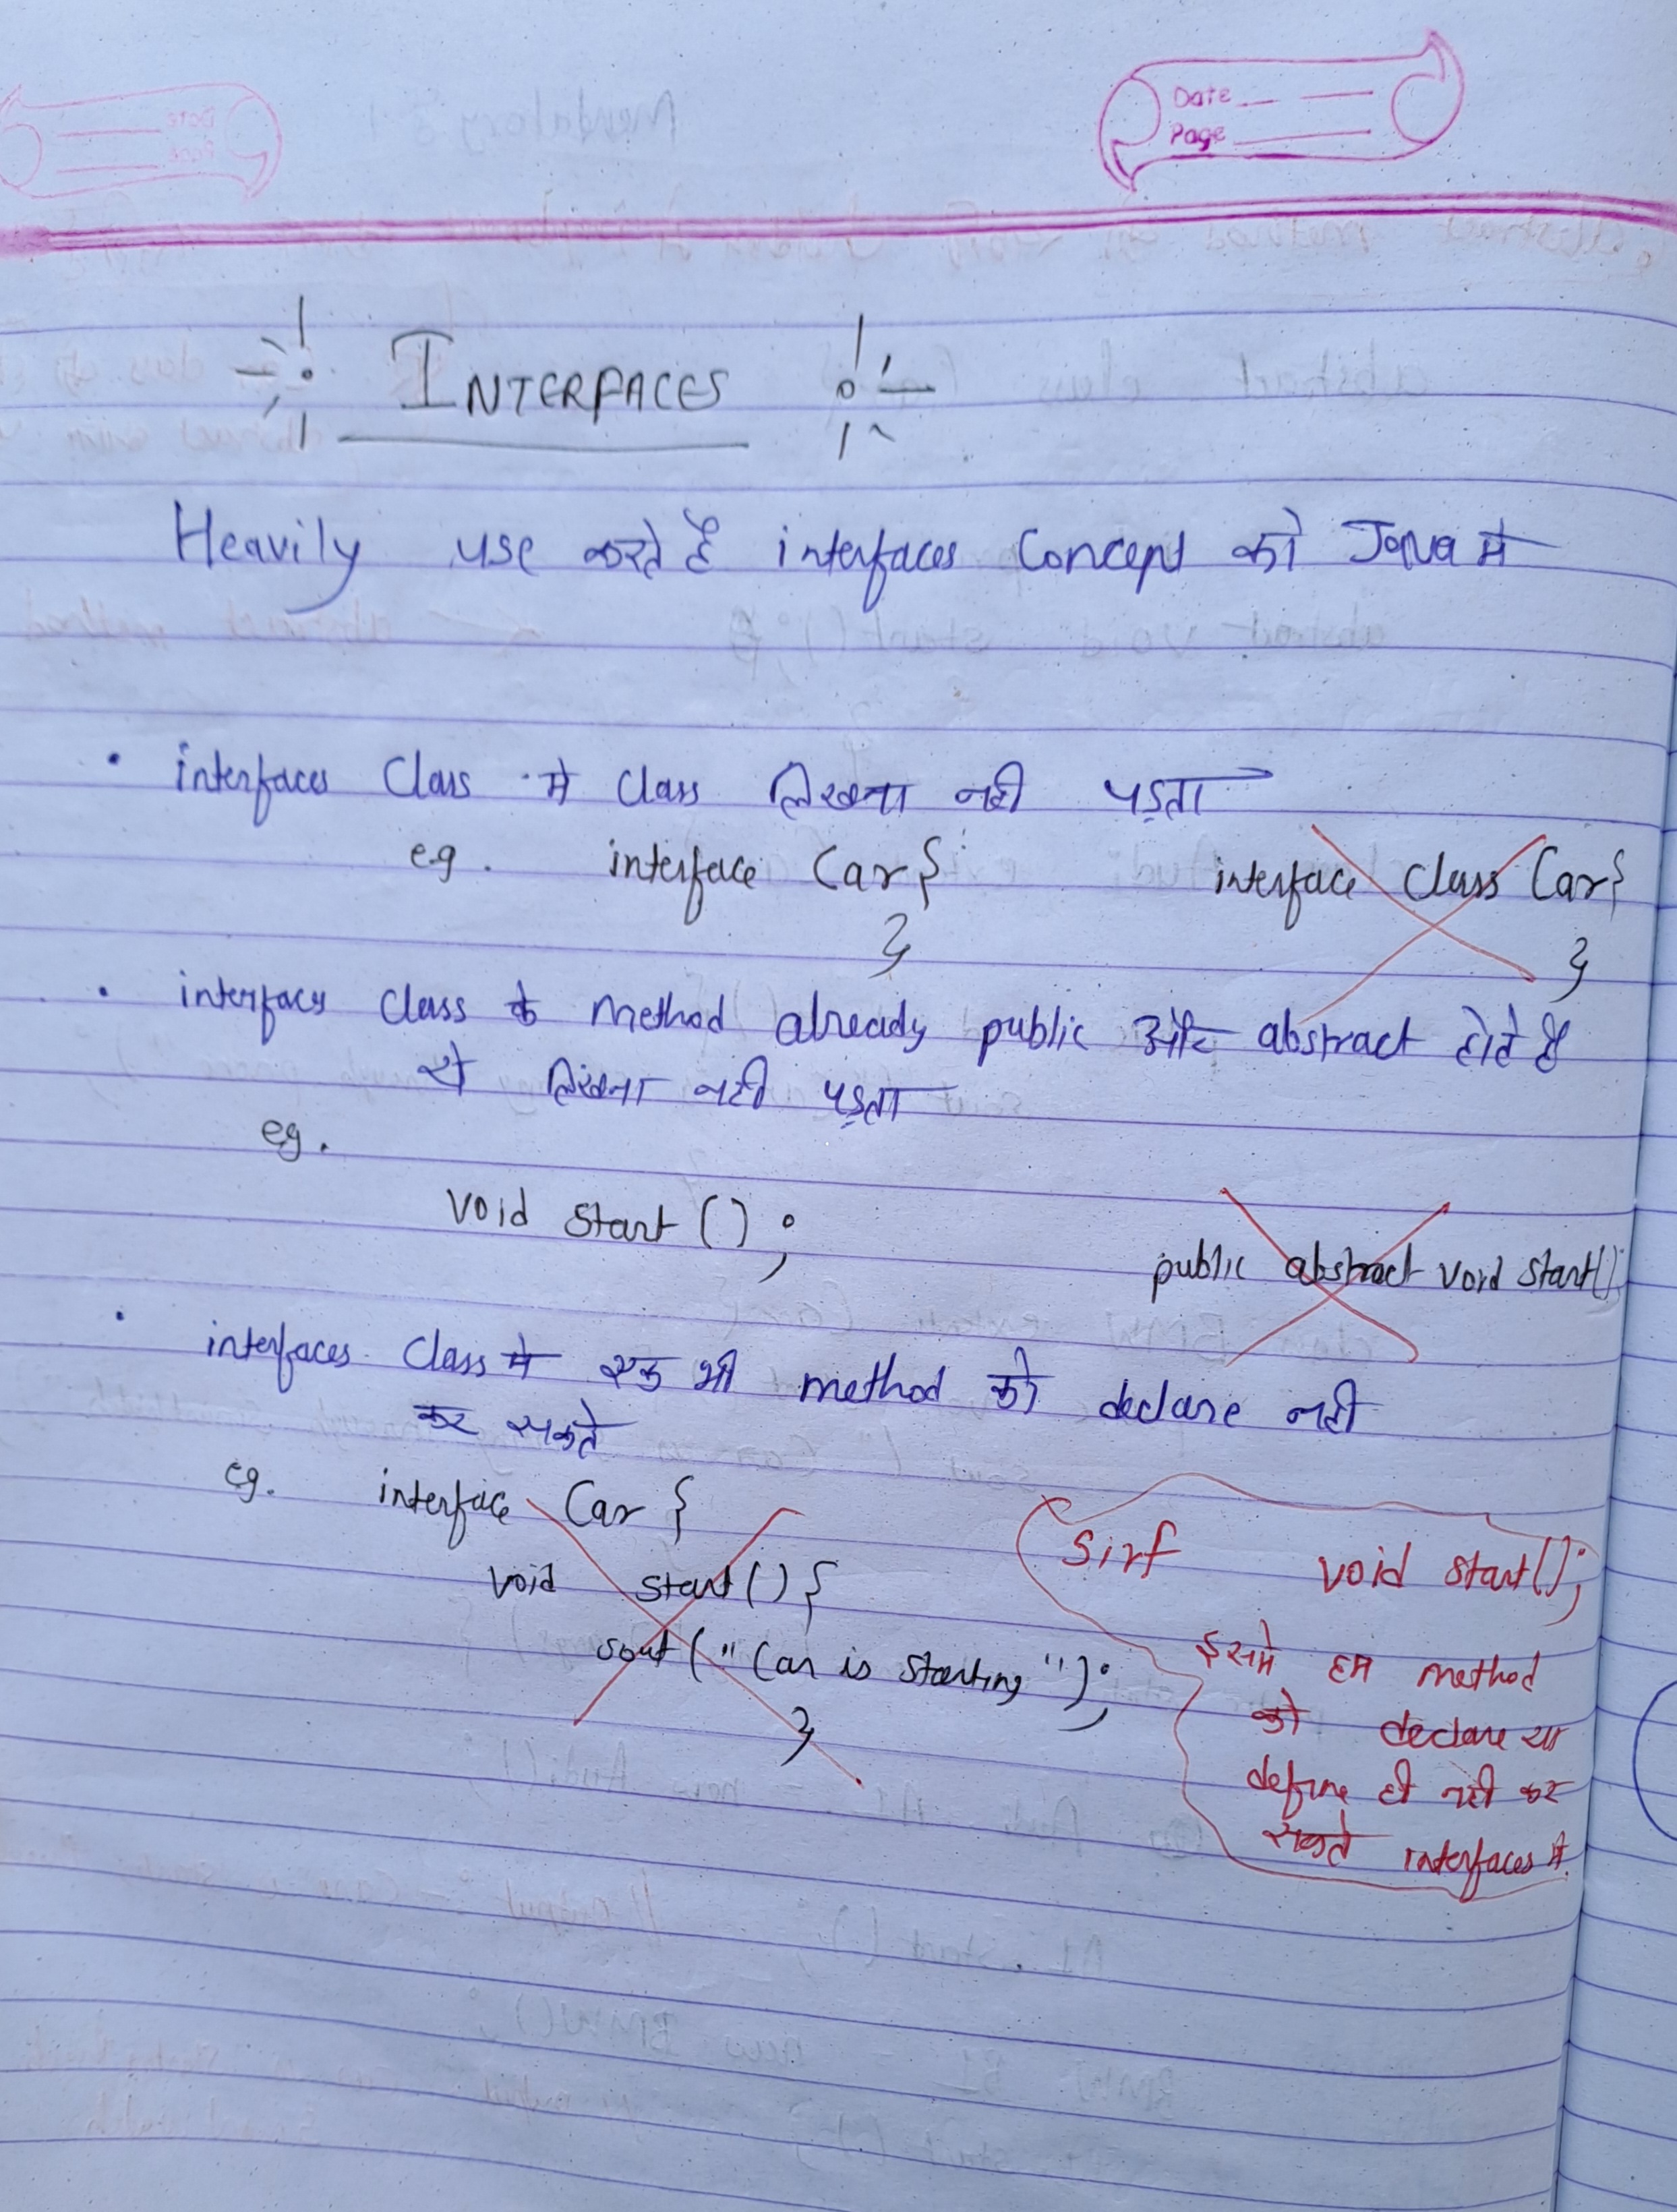 Date
Page
INTERFACES
Heavily use करते है interfaces Concept को Java मे
• interfaces Class मे class लिखना नही पड़ता
e.g. interface Car{ interface class Car{
} }
• interfaces class के method already public और abstract होते है
सो लिखना नही पड़ता
eg.
void start();
public abstract void start();
• interfaces class मे एक भी method को declare नही
कर सकते
eg. interface Car {
void start(){
sout("Car is starting");
}
Sirf void start();
इसमे हम method
को declare या
define ही नही कर
सकते interfaces मे.